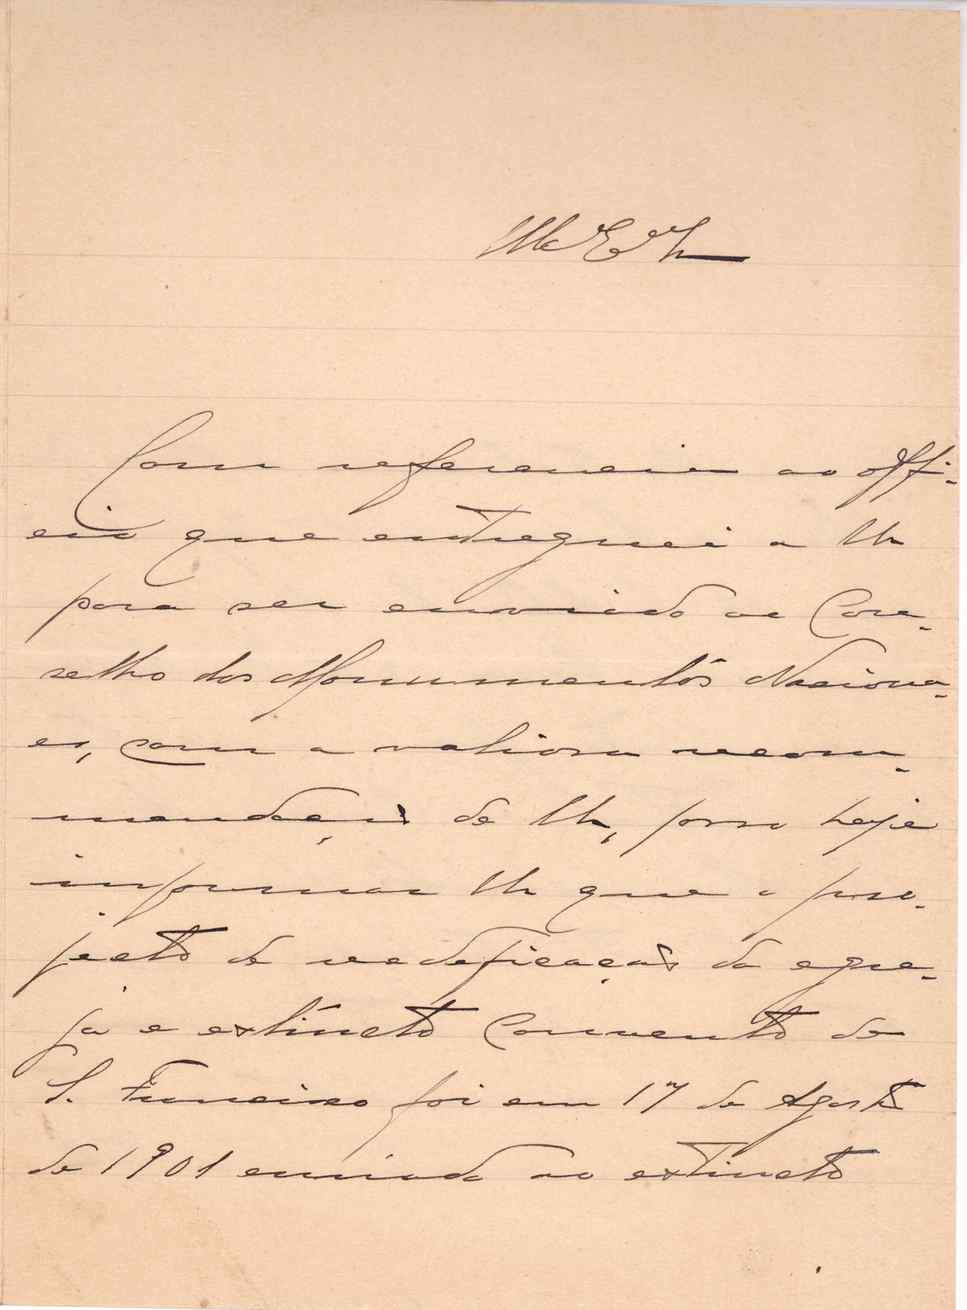 Com referencia ao offi-
cio que entreguei a
para ser enviado ao Con-
selho dos Monumentos Naciona-
es, com a valiosa recom-
mendação de V. Ex., posso hoje
informar que o pro-
jecto de reedificação da egre-
ja e extincto Convento de
S. Francisco foi em 17 de Agosto
de 1901 enviado ao extincto